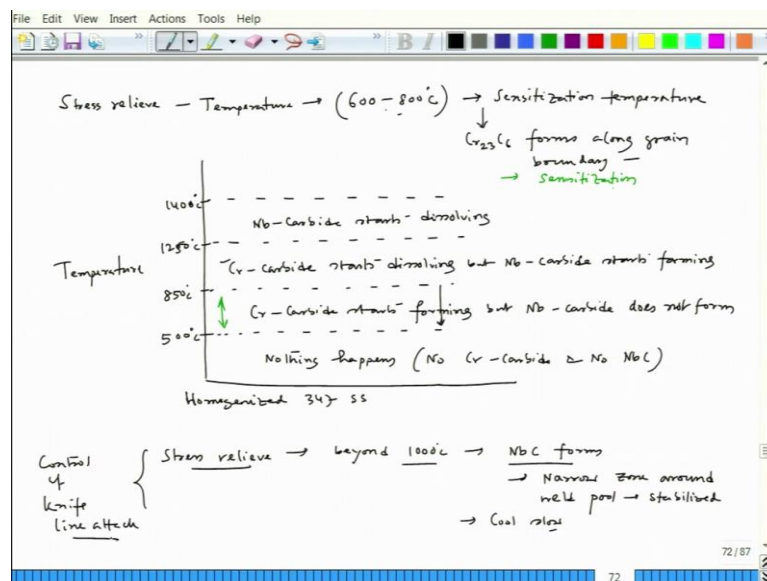 File Edit View Insert Actions Tools Help
B I
Stress relieve – Temperature → (600 – 800°C) → Sensitization temperature
↓
Cr23C6 forms along grain
boundary –
→ Sensitization
1400°C
Nb-Carbide starts dissolving
1250°C
Temperature
Cr-Carbide starts dissolving but Nb-Carbide starts forming
850°C
Cr-Carbide starts forming but Nb-carbide does not form
500°C
Nothing happens (No Cr-Carbide & No NbC)
Homogenized 347 SS
Control
of
knife
line attack
Stress relieve → beyond 1000°C → NbC forms
→ Narrow zone around
weld pool → stabilized
→ Cool slow
72/87
72